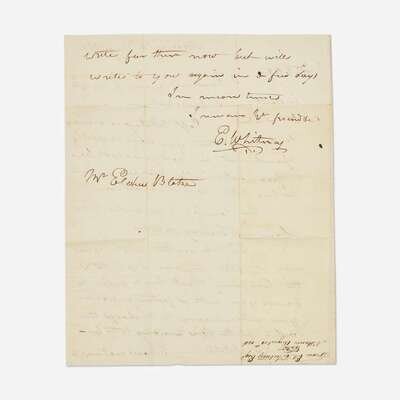 write further now but will
write to you again in a few days
In mean time
I remain yr friend
E. Whitney
Mr Elihu Blake